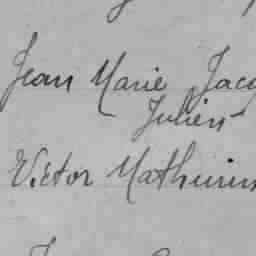 Jean Marie Jacq
Julien
Victor Mathurin